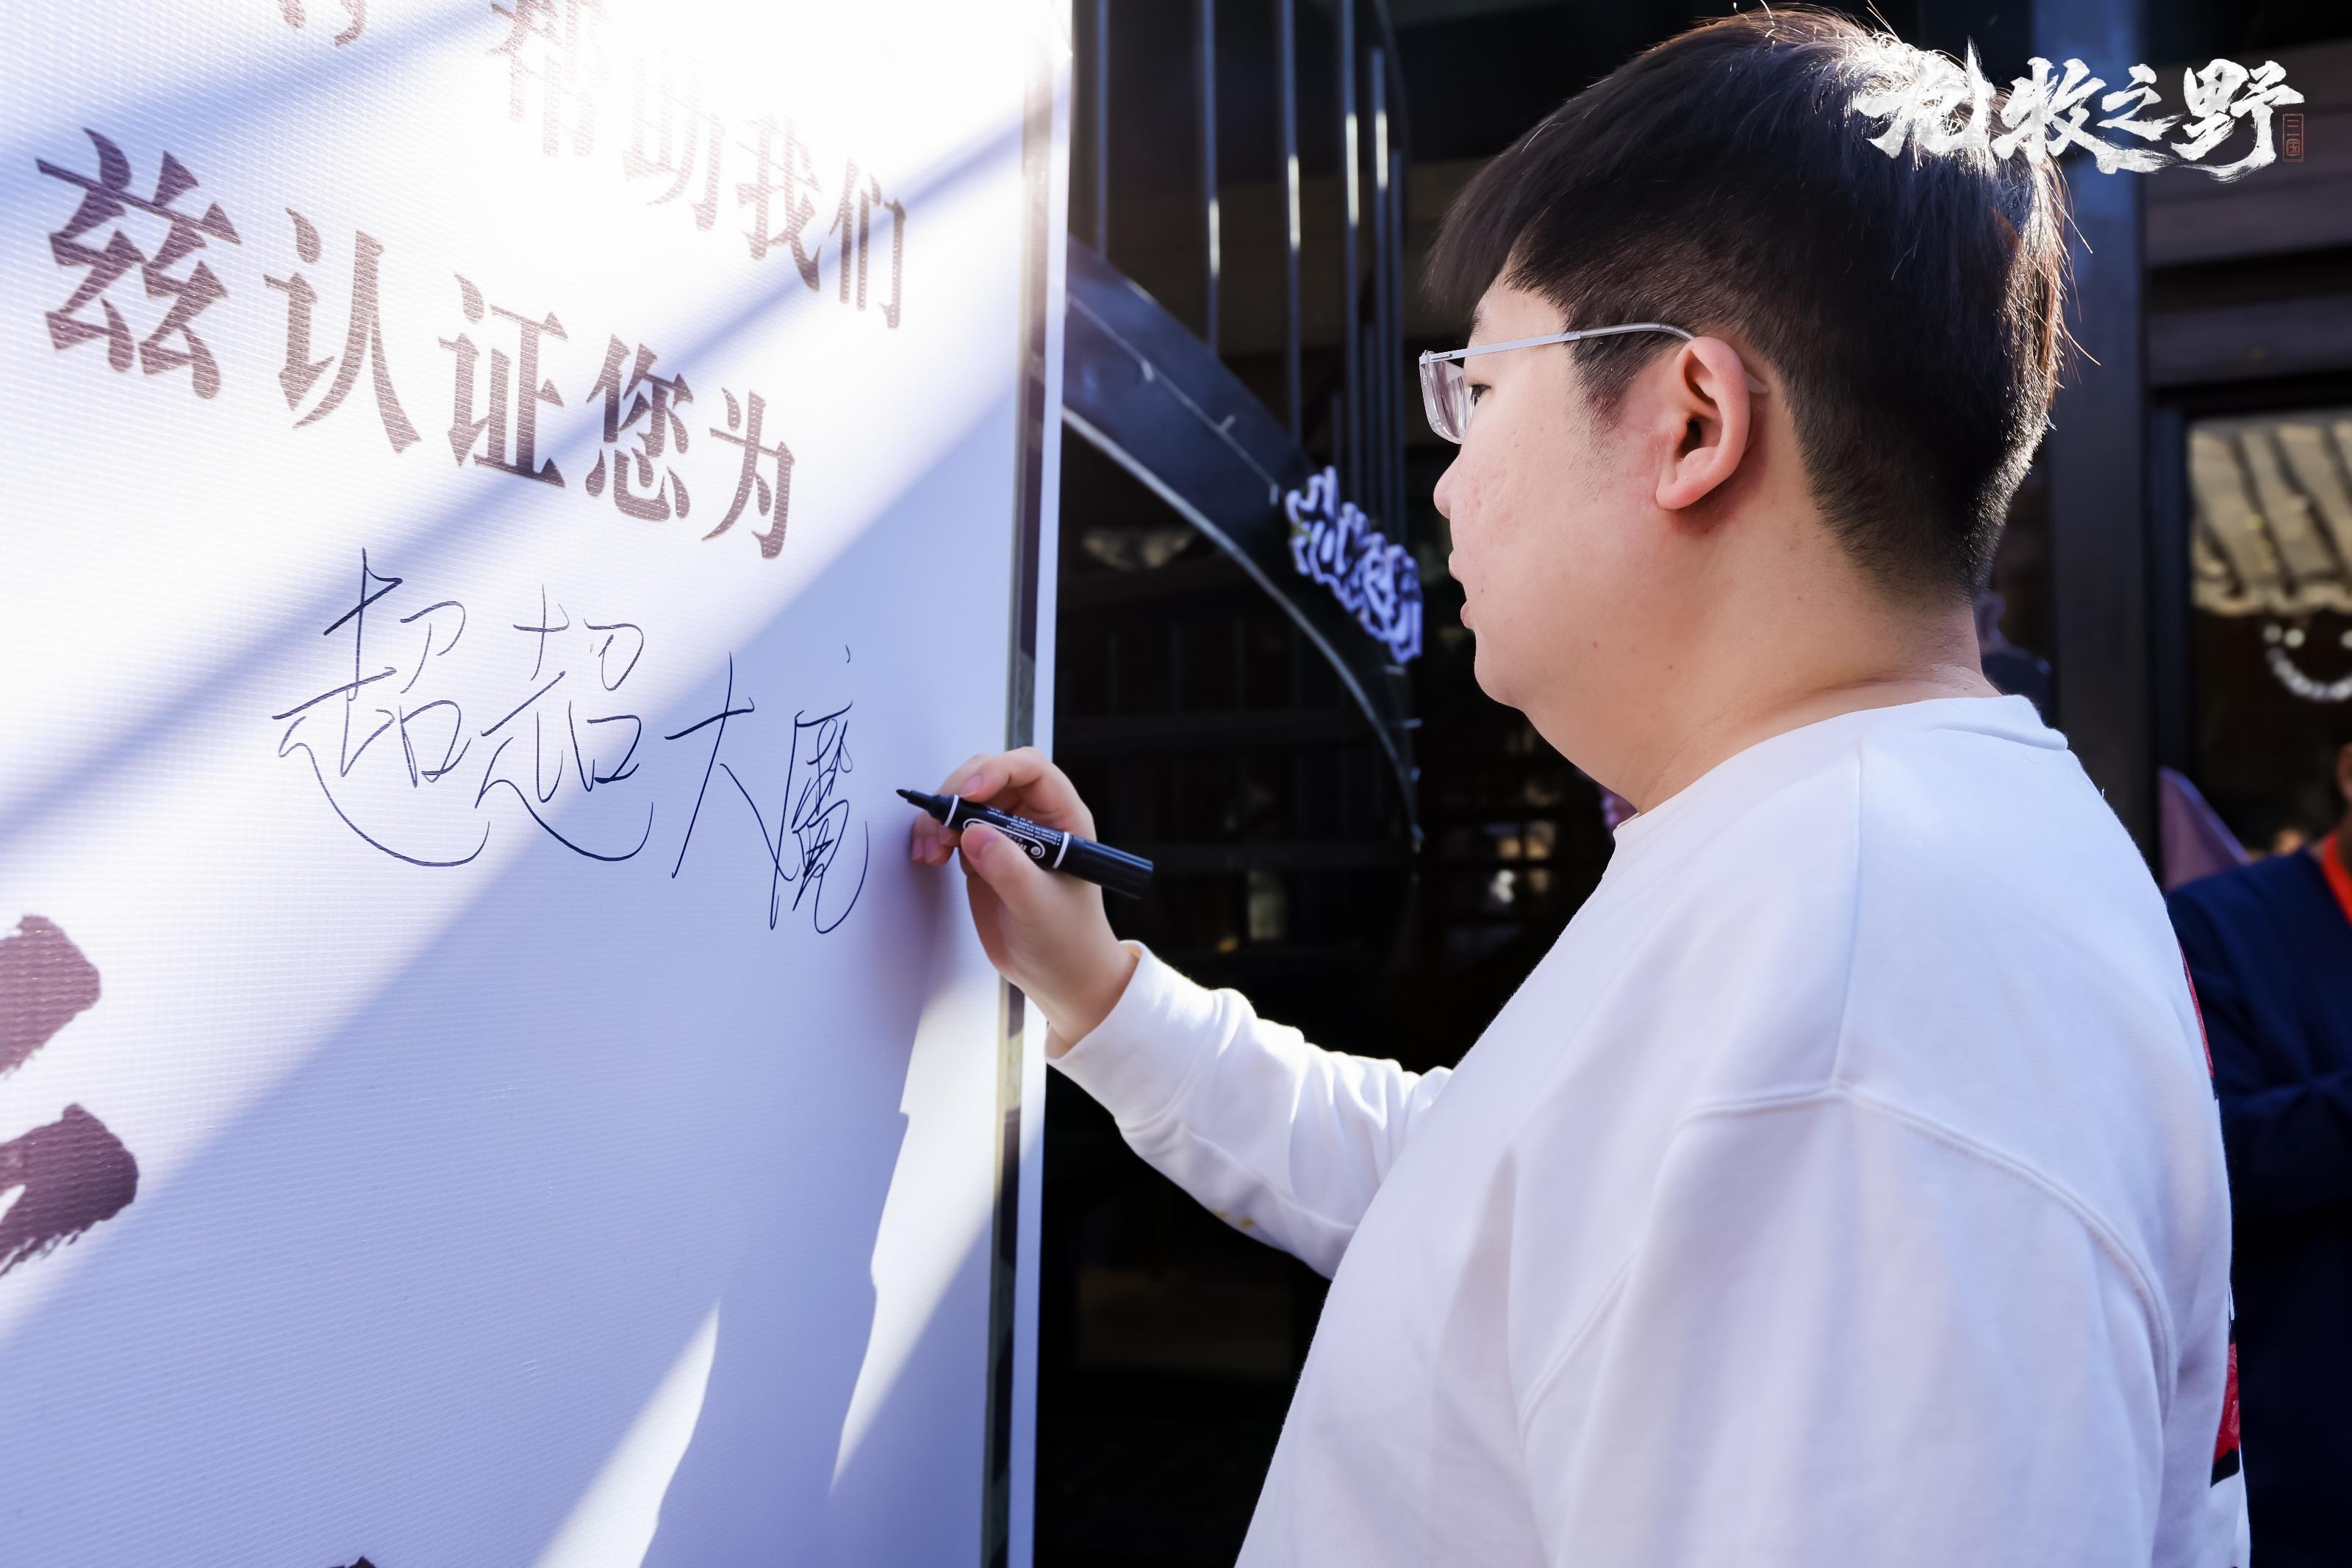 帮助我们
兹认证您为
超超大魔
九牧之野
三国